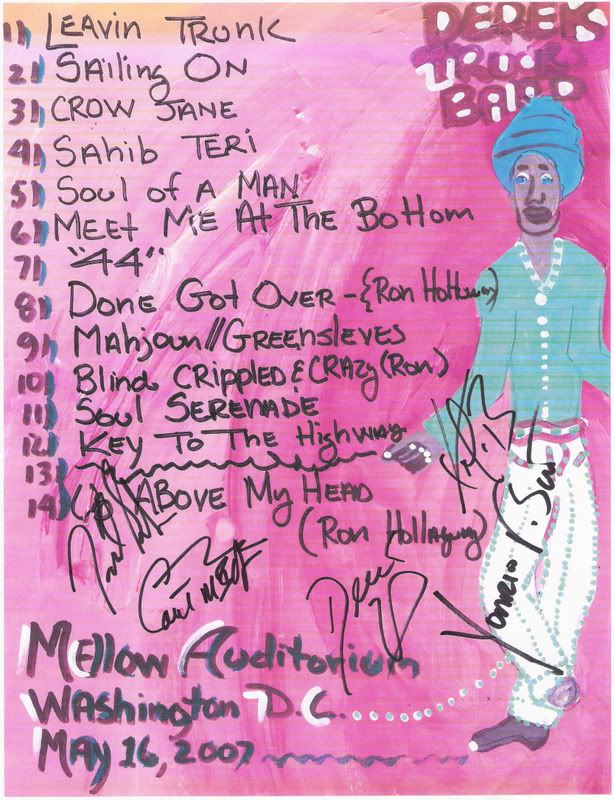 DEREK
TRUCKS
BAND
1) LEAVIN TRUNK
2) SAiLing ON
3) CROW JANE
4) SAHIB TERi
5) Soul of A MAN
6) MEET ME At The Bottom
7) "44"
8) DONE Got OVER - {Ron Holloway}
9) MAHJOUN//GREENSLEVES
10) Blind CRIPPLED & CRAZY (Ron)
11) Soul SERENADE
12) KEY To The Highway
13)
14) UP ABOVE My HEAD
(Ron Hollaway)
Mellow Auditorium
WAShington D.C.
MAY 16, 2007